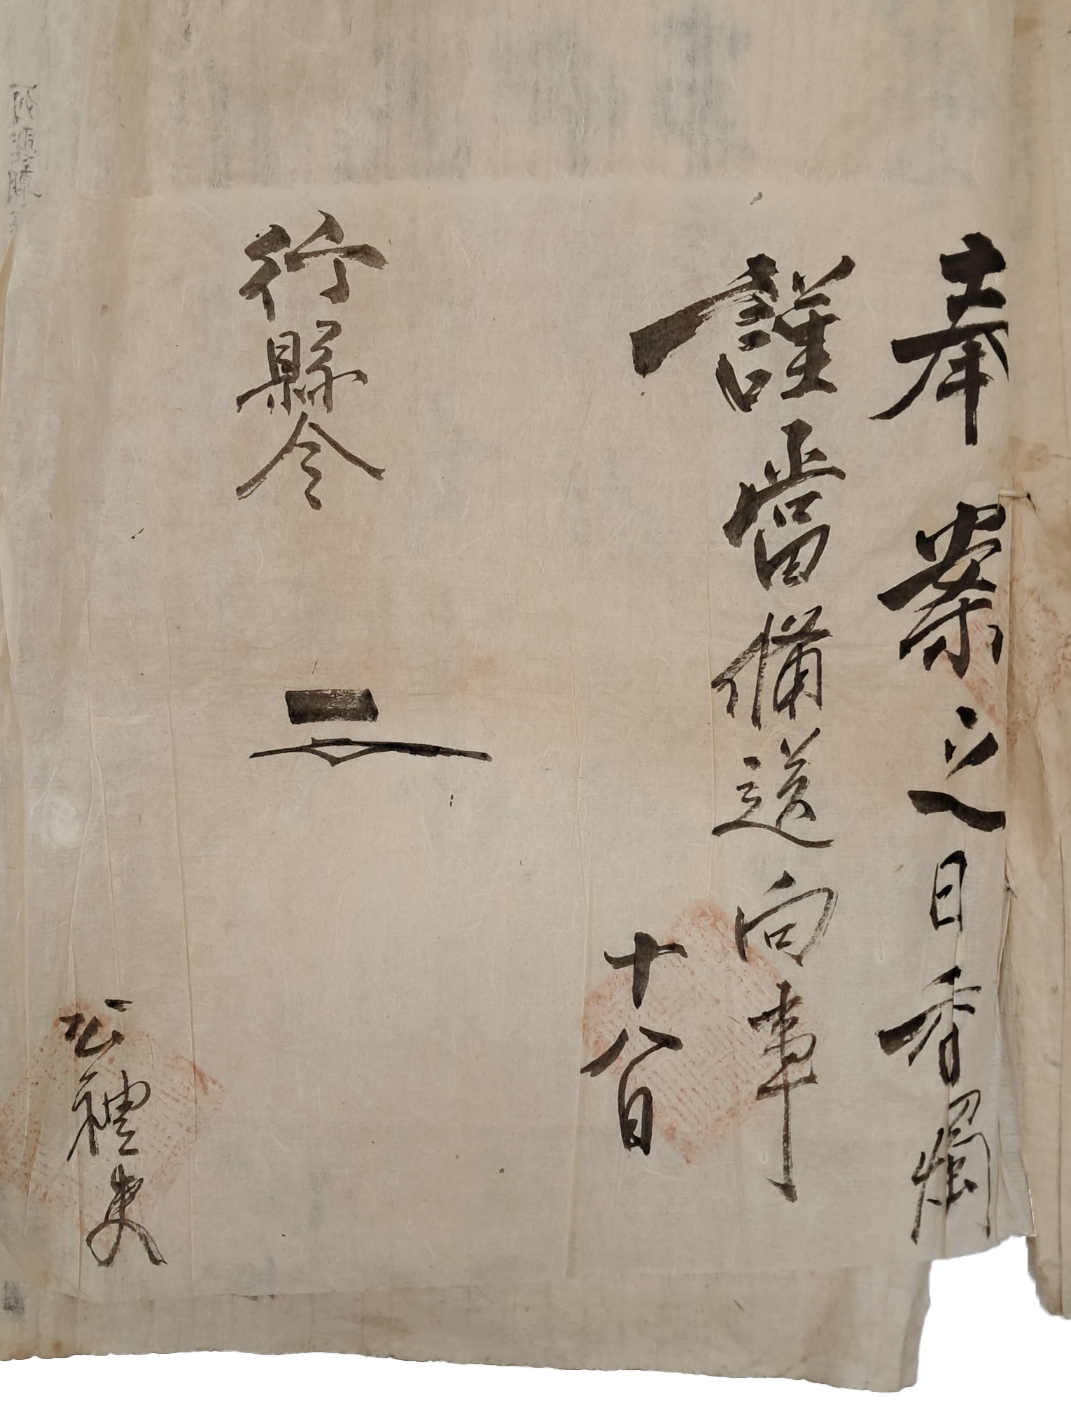 奉 案之日香燭
謹當備送向事
十八日
行縣令
公禮吏